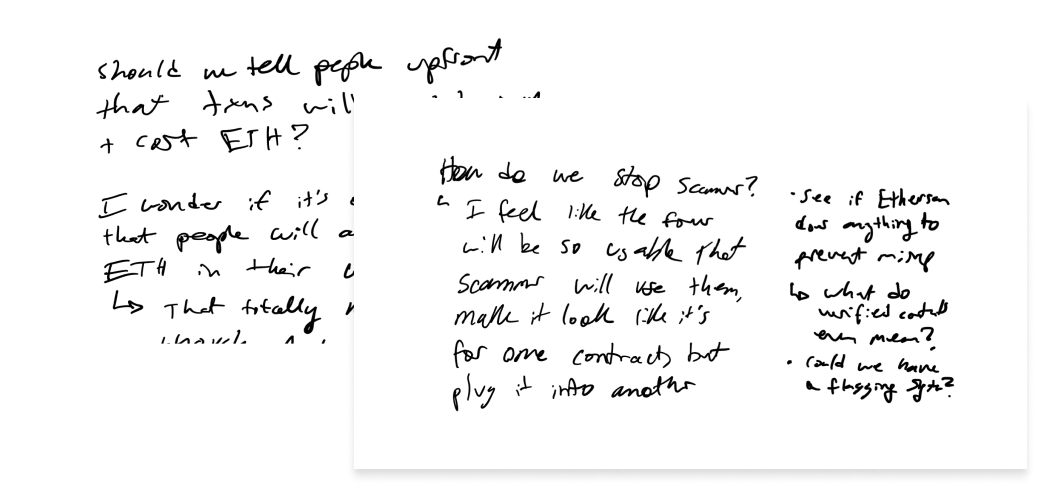 should we tell people upfront
that txns will
+ cost ETH?
I wonder if it's
that people will a
ETH in their
↳ That totally
How do we stop scammers?
I feel like the forms
will be so usable that
scammers will use them,
make it look like it's
for one contract, but
plug it into another
• see if Etherscan
does anything to
prevent misuse
↳ what do
verified contracts
even mean?
• Could we have
a flagging system?